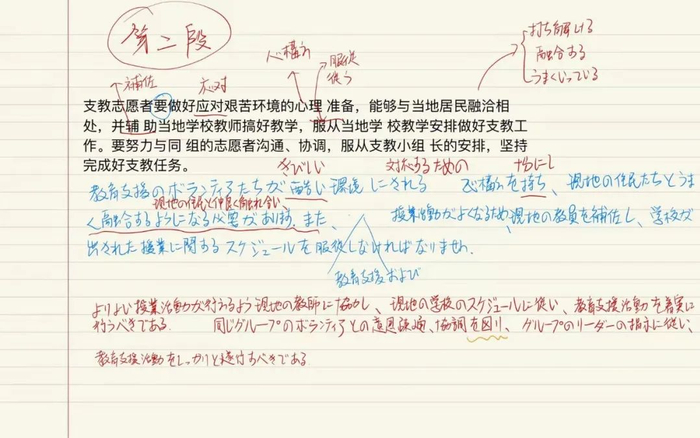 第二段
补佐
应对
心構え
服従
従う
打ち解ける
融合する
うまくいっている
支教志愿者要做好应对艰苦环境的心理 准备，能够与当地居民融洽相
处，并辅 助当地学校教师搞好教学，服从当地学 校教学安排做好支教工
作。要努力与同 组的志愿者沟通、协调，服从支教小组 长的安排，坚持
完成好支教任务。
きびしい 対応するための
教育支援のボランティアたちが酷い環境にされる 心構えを持ち、現地の住民たちとうま
現地の住民と仲良く触れ合い
く融合するようになる必要があります。また、 授業活動がよくなるため、現地の教員を補佐し、学校が
出された授業に関するスケジュールを服従しなければなりません。
教育支援および
よりよい授業活動が行えるよう現地の教師に協力し、現地の学校のスケジュールに従い、教育支援活動を着実に
行うべきである。 同じグループのボランティアとの意思疎通、協調を図り、グループのリーダーの指示に従い、
教育支援活動をしっかりと すべきである。